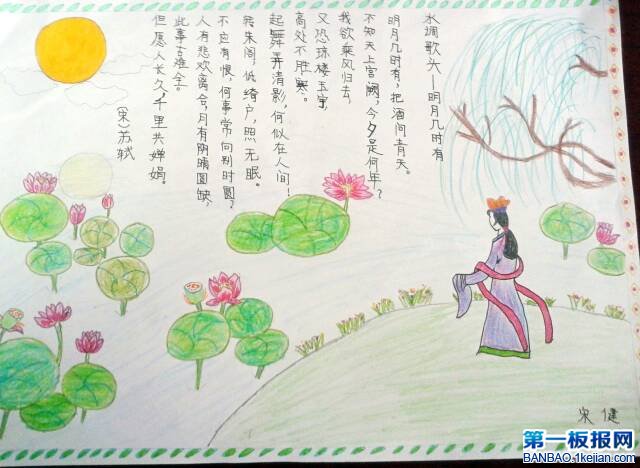 水调歌头——明月几时有
明月几时有，把酒问青天。
不知天上宫阙，今夕是何年？
我欲乘风归去，
又恐琼楼玉宇，
高处不胜寒。
起舞弄清影，何似在人间！
转朱阁，低绮户，照无眠。
不应有恨，何事常向别时圆？
人有悲欢离合，月有阴晴圆缺，
此事古难全。
但愿人长久，千里共婵娟。
（宋）苏轼
宋健
第一板报网
BANBAO.1kejian.com